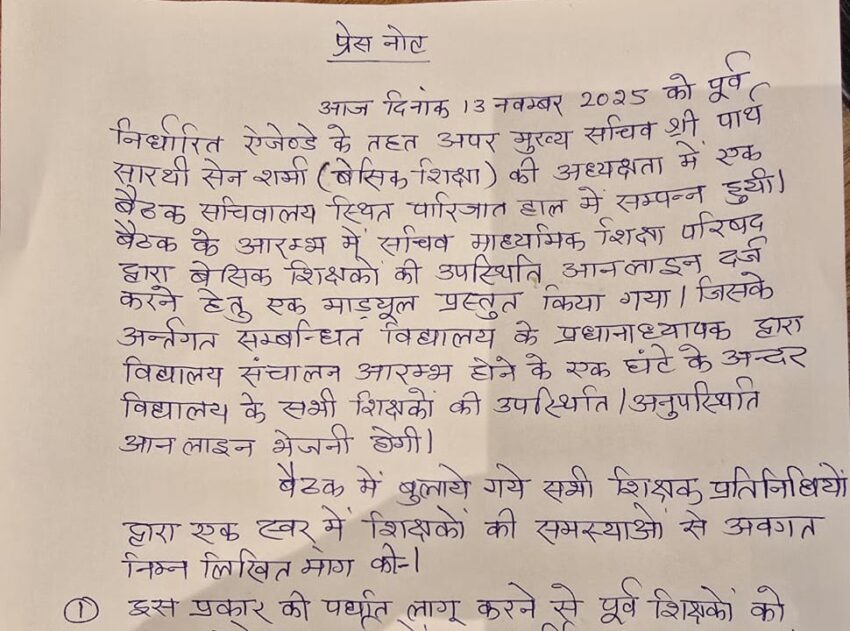 प्रेस नोट
आज दिनांक 13 नवम्बर 2025 को पूर्व
निर्धारित ऐजेण्डे के तहत अपर मुख्य सचिव श्री पार्थ
सारथी सेन शर्मा (बेसिक शिक्षा) की अध्यक्षता में एक
बैठक सचिवालय स्थित पारिजात हाल में सम्पन्न हुयी।
बैठक के आरम्भ में सचिव माध्यमिक शिक्षा परिषद
द्वारा बेसिक शिक्षकों की उपस्थिति आनलाइन दर्ज
करने हेतु एक माड्यूल प्रस्तुत किया गया। जिसके
अर्न्तगत सम्बन्धित विद्यालय के प्रधानाध्यापक द्वारा
विद्यालय संचालन आरम्भ होने के एक घंटे के अन्दर
विद्यालय के सभी शिक्षकों की उपस्थिति/अनुपस्थिति
आन लाइन भेजनी होगी।
बैठक में बुलाये गये सभी शिक्षक प्रतिनिधियों
द्वारा एक स्वर में शिक्षकों की समस्याओं से अवगत
निम्न लिखित मांग की-।
① इस प्रकार की लागू करने से पूर्व शिक्षकों को